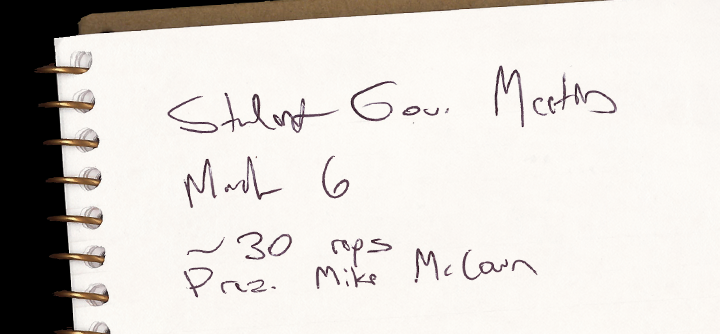 Student Gov. Meeting
March 6
~ 30 reps
Prez. Mike McCown